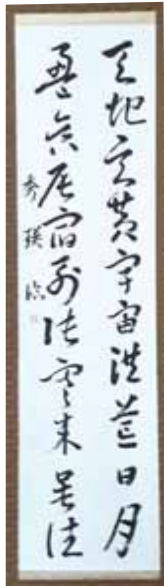 天地玄黄宇宙洪荒日月
盈昃辰宿列張寒来暑往
秀瑛臨